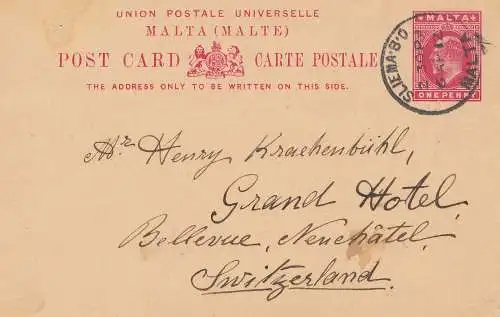 UNION POSTALE UNIVERSELLE
MALTA (MALTE)
POST CARD CARTE POSTALE
THE ADDRESS ONLY TO BE WRITTEN ON THIS SIDE.
MALTA
ONE PENNY
SLIEMA·B·O
MALTA
Mr Henry Krachenbühl,
Grand Hotel,
Bellevue, Neuchâtel,
Switzerland.